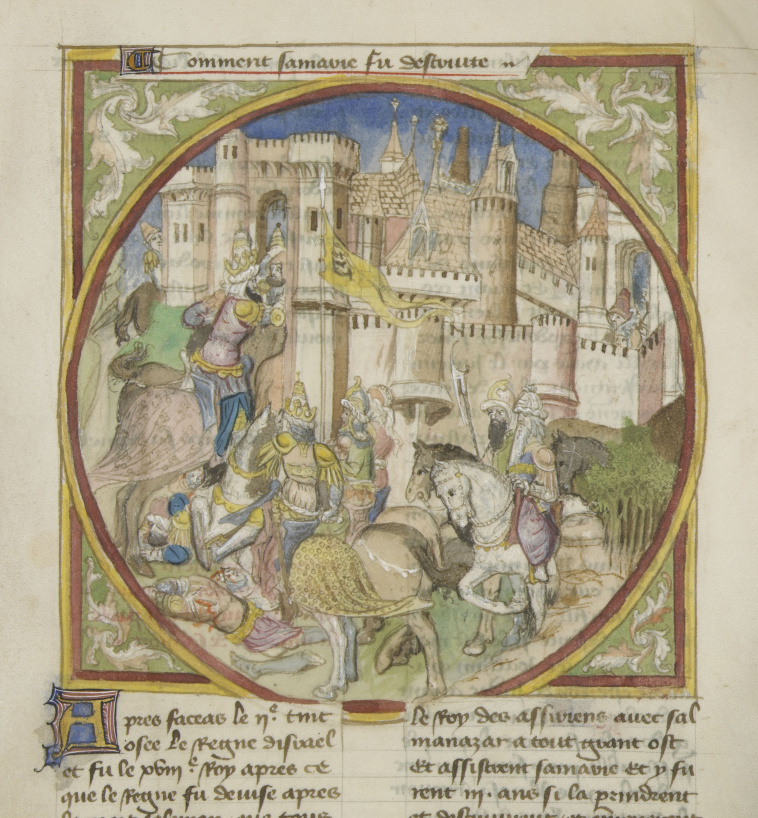 Comment samarie fu destruite
Apres faceas le iie. tint
osee le Regne disrael
et fu le xviiie. Roy apres ce
que le Regne fu deuise apres
le Roy des assiriens auec sal
manazar a tout grant ost
Et assistrent samarie Et y fu
rent iii. ans si la prindrent